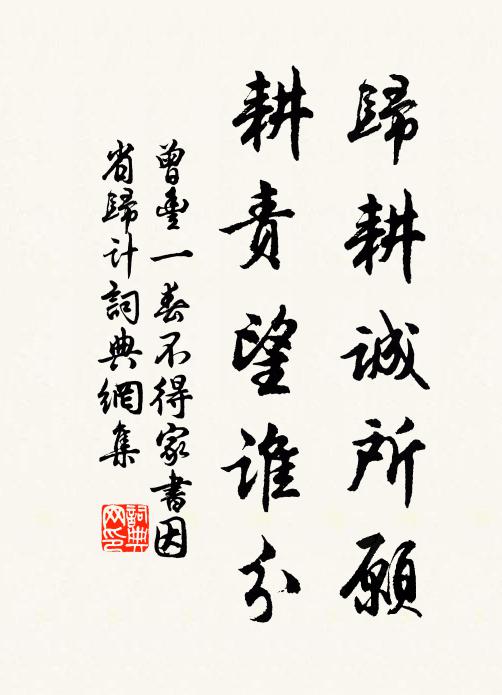 歸耕誠所願
耕責望誰分
曾豐一春不得家書因
省歸計詞典網集
詞典
网印